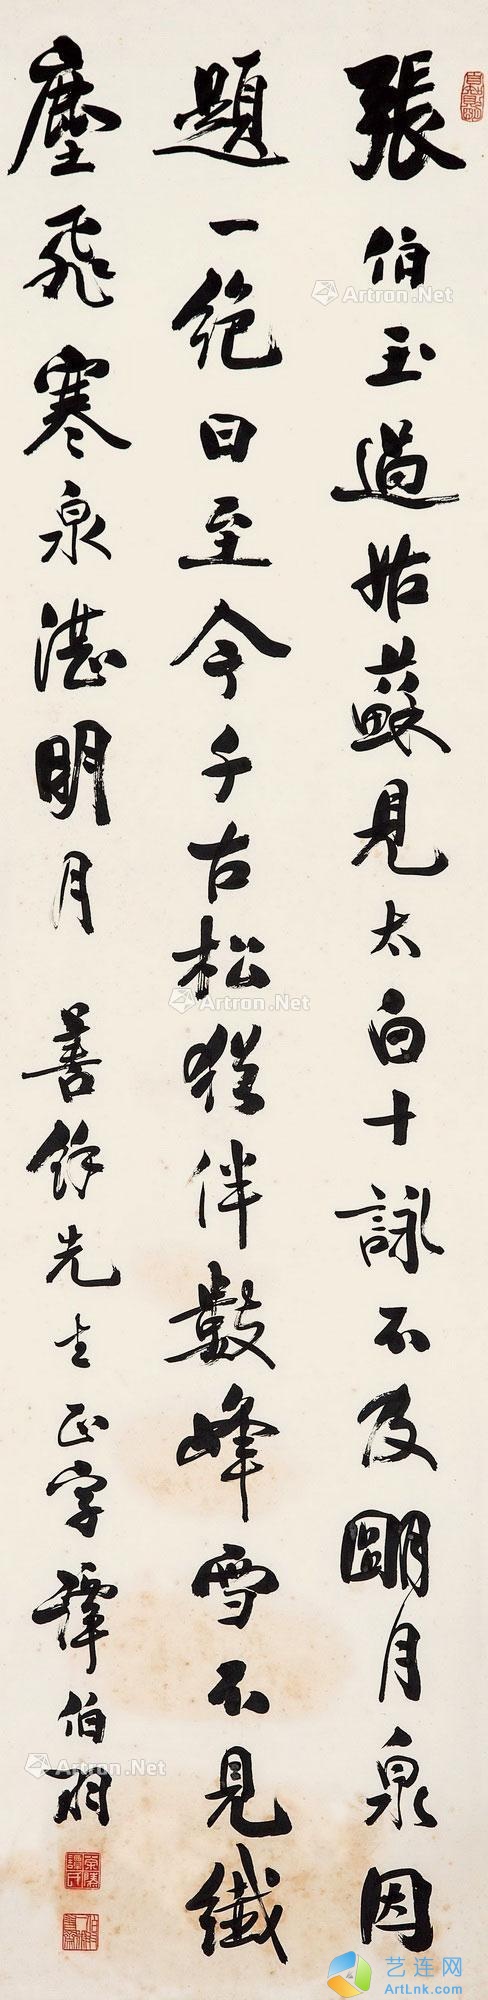 張伯玉過姑蘇見太白十詠不及朙月泉因
題一絶曰至今千古松猶伴數峰雪不見纖
塵飛寒泉湛明月 善餘先生正字 譚伯羽
Artron.Net
Artron.Net
Artron.Net
艺连网
ArtLnk.com